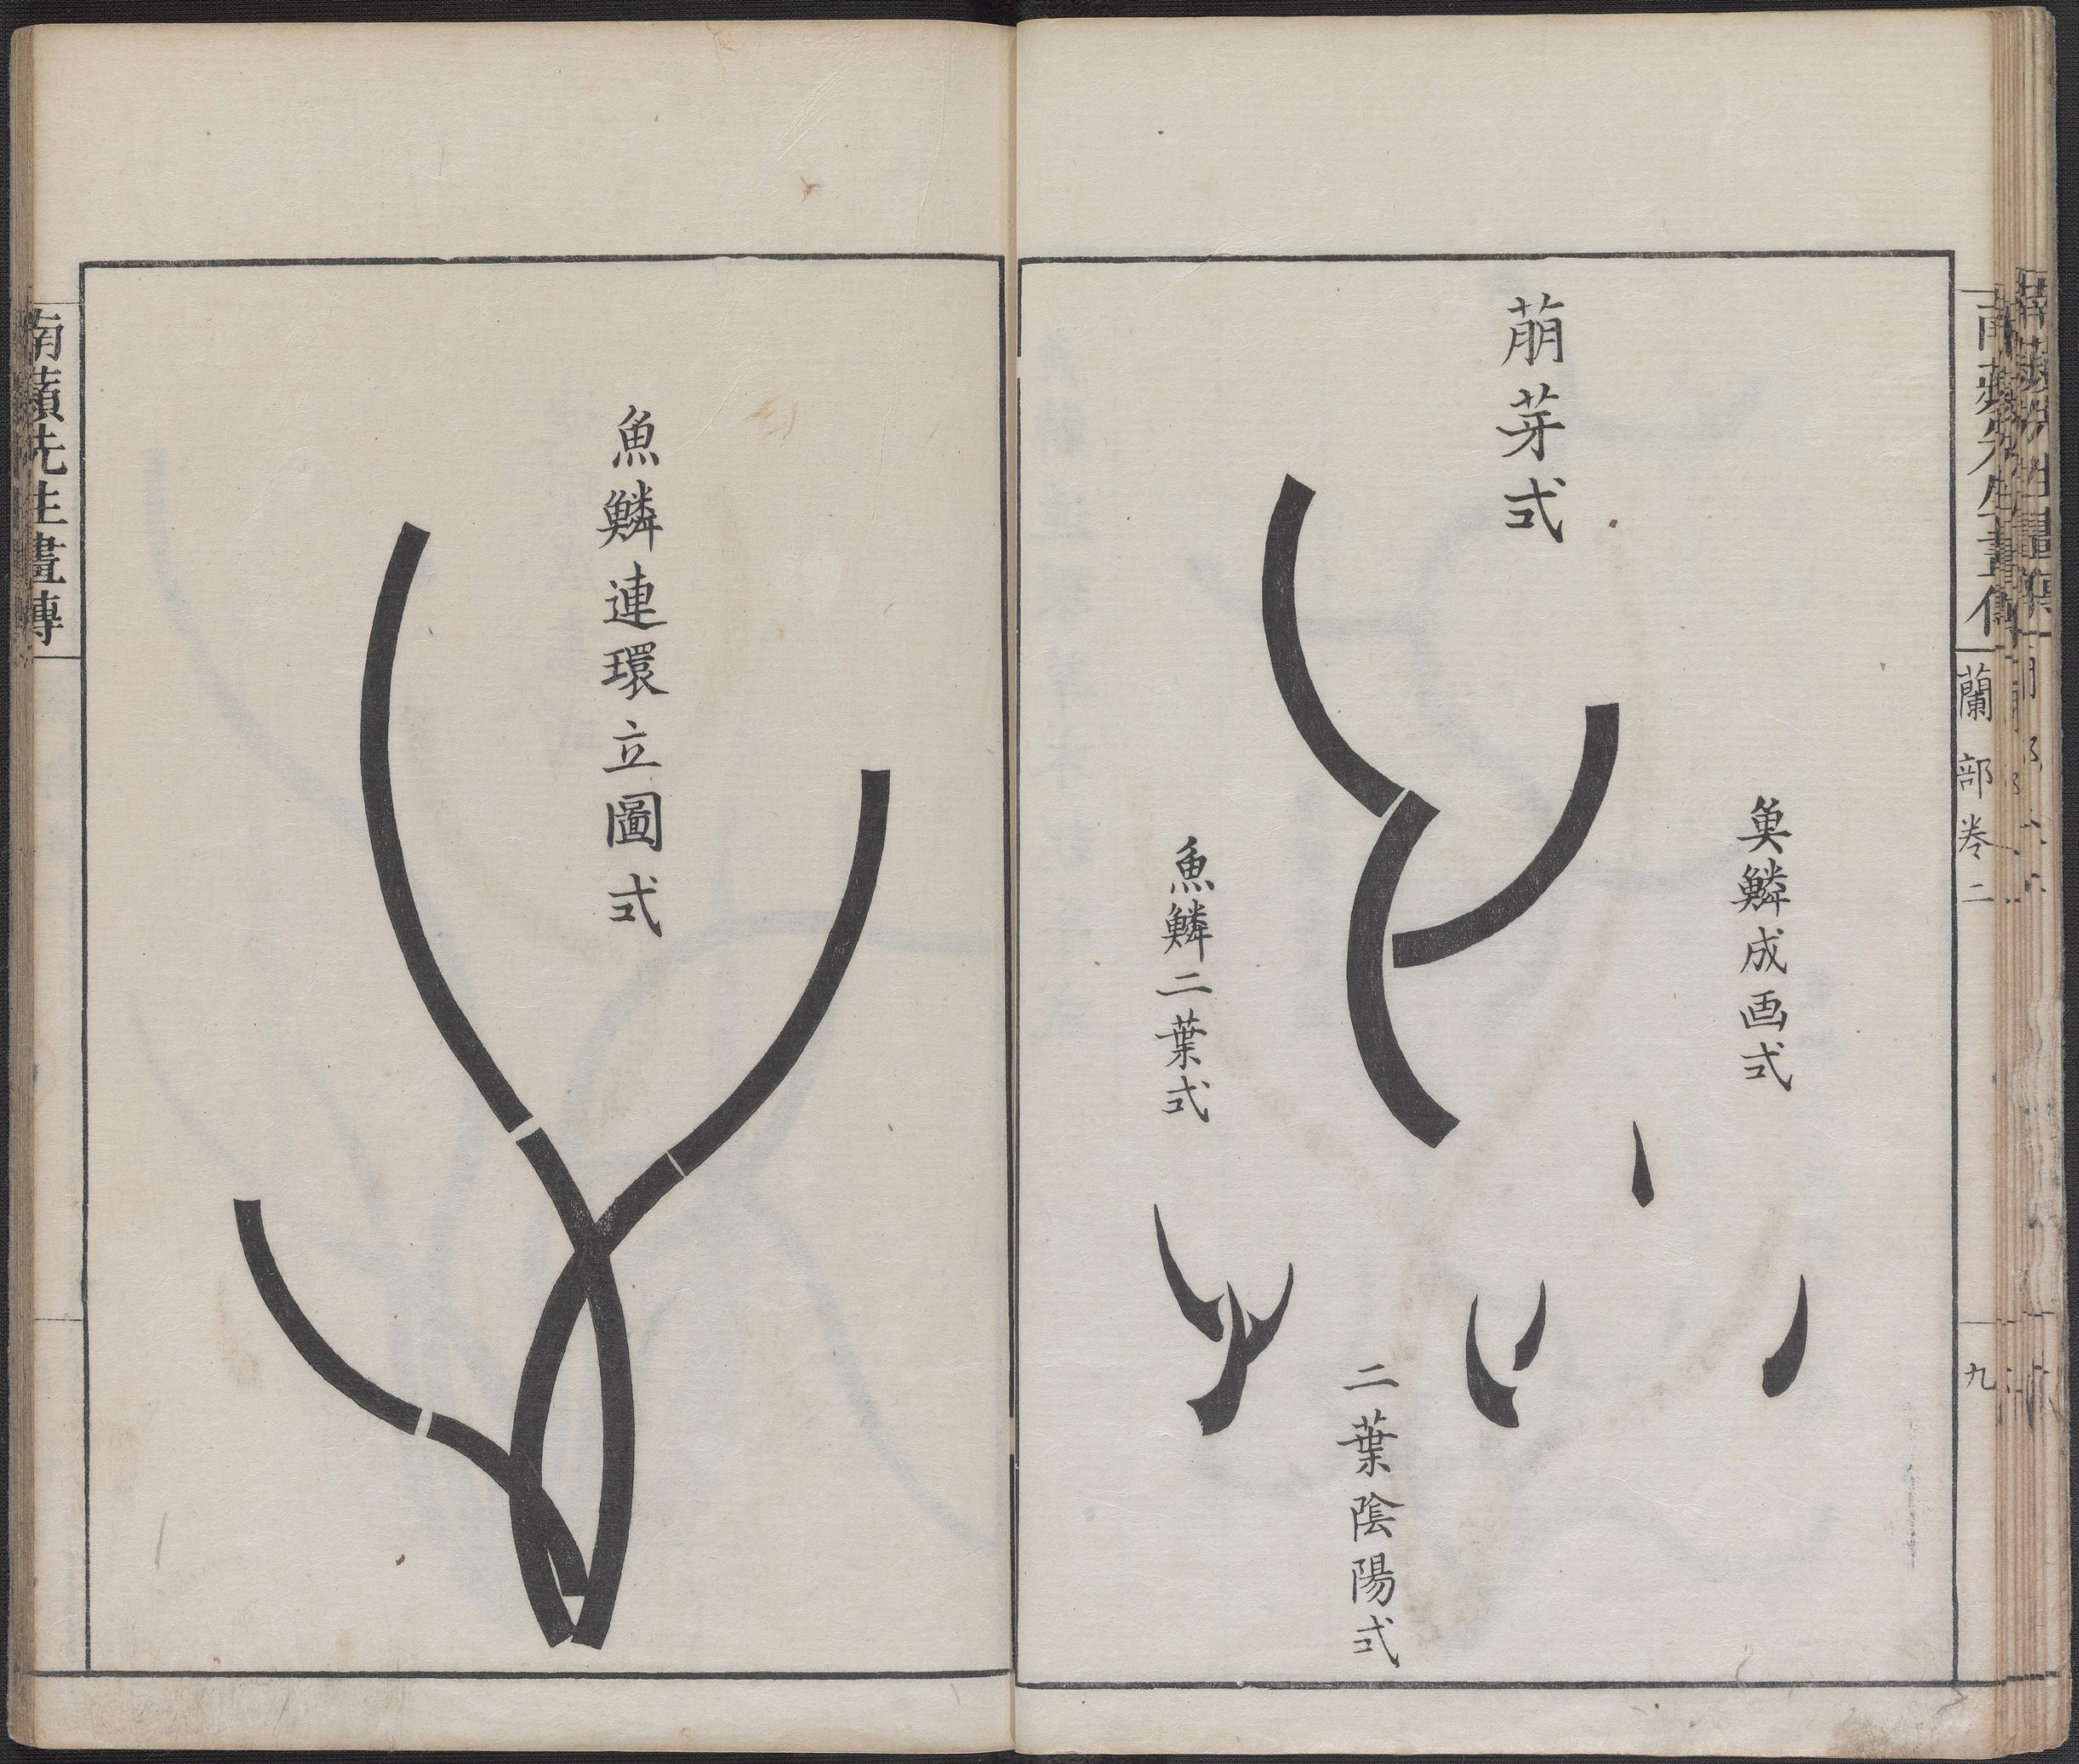 萠芽式
𩵋鱗成画式
二葉陰陽式
魚鱗二葉式
蘭部卷二
九
魚鱗連環立圖式
南蘋先生畫傳